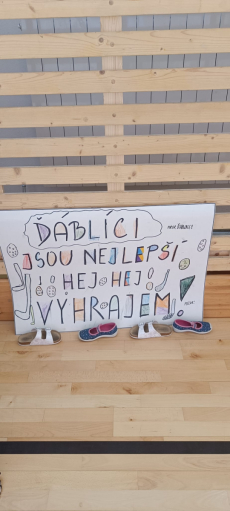 ĎÁBLÍCI
JSOU NEJLEPŠÍ
! HEJ HEJ!
VYHRAJEM!